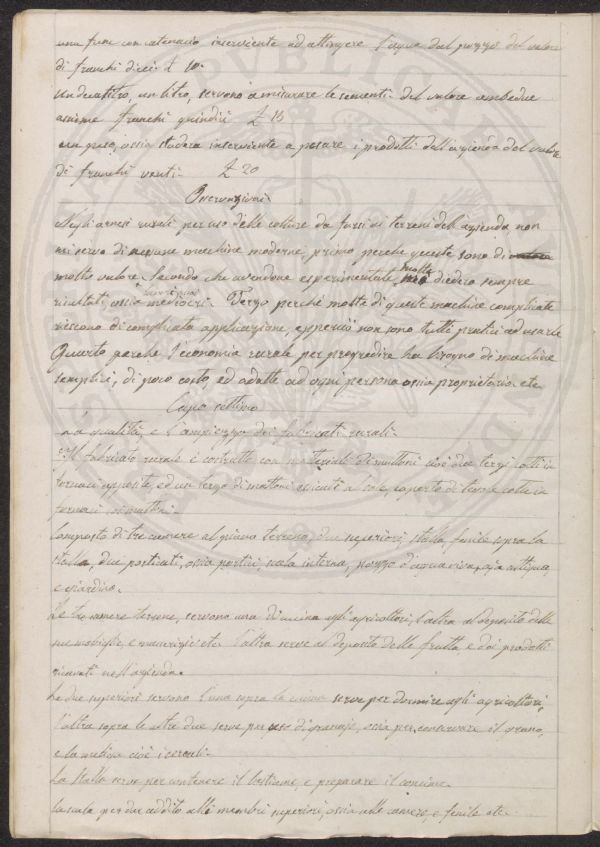 una fune con catenaccio inserviente ad attingere l'acqua dal pozzo del valore
di franchi dieci £ 10.
un decalitro, un litro, servono a misurare le sementi del valore ambedue
assieme franchi quindici £ 15
un peso, ossia stadera inserviente a pesare i prodotti dell'azienda del valore
di franchi venti £ 20
Osservazioni
Negli arnesi rurali per uso delle colture da farsi ai terreni dell'azienda non
mi servo di nessune macchine moderne, primo perche queste sono di
molto valore. Secondo che avendone esperimentate, molte diedero sempre
risultati ossia mediocri. Terzo perchè molte di queste macchine complicate
riescono di complicata applicazione, eppercuì non sono tutti pratici ad usarle
Quarto perche l'economia rurale per progredire ha bisogno di macchine
semplici, di poco costo, ed adatte ad ogni persona ossia proprietario. etc
Capo settimo
La qualità, e l'ampiezza dei fabbricati rurali.
Il fabbricato rurale è costrutto con materiali di mattoni cioè due terzi cotti in
fornaci apposite, ed un terzo di mattoni essicati al sole, coperto di tavole cotte in
fornaci coi mattoni.
Composto di tre camere al piano terreno, due superiori, stalla, fenile sopra la
stalla, due porticati, ossia portici, scala interna, pozzo d'acqua viva, aja attigua
e giardino.
Le tre camere terrene, servono una di cucina agli agricoltori, l'altra al deposito delle
sue mobiglie, e masserizie etc. l'altra serve al deposito delle frutta e dei prodotti
ricavati nell'azienda.
Le due superiori servono l'una sopra la cucina serve per dormire agli agricoltori,
l'altra sopra le altre due serve per uso di granajo, ossia per conservare il grano,
e la meliga cioè i cereali.
La Stalla serve per contenere il bestiame, e preparare il concime.
La scala per dar addito alli membri superiori, ossia alle camere, e fenile etc.